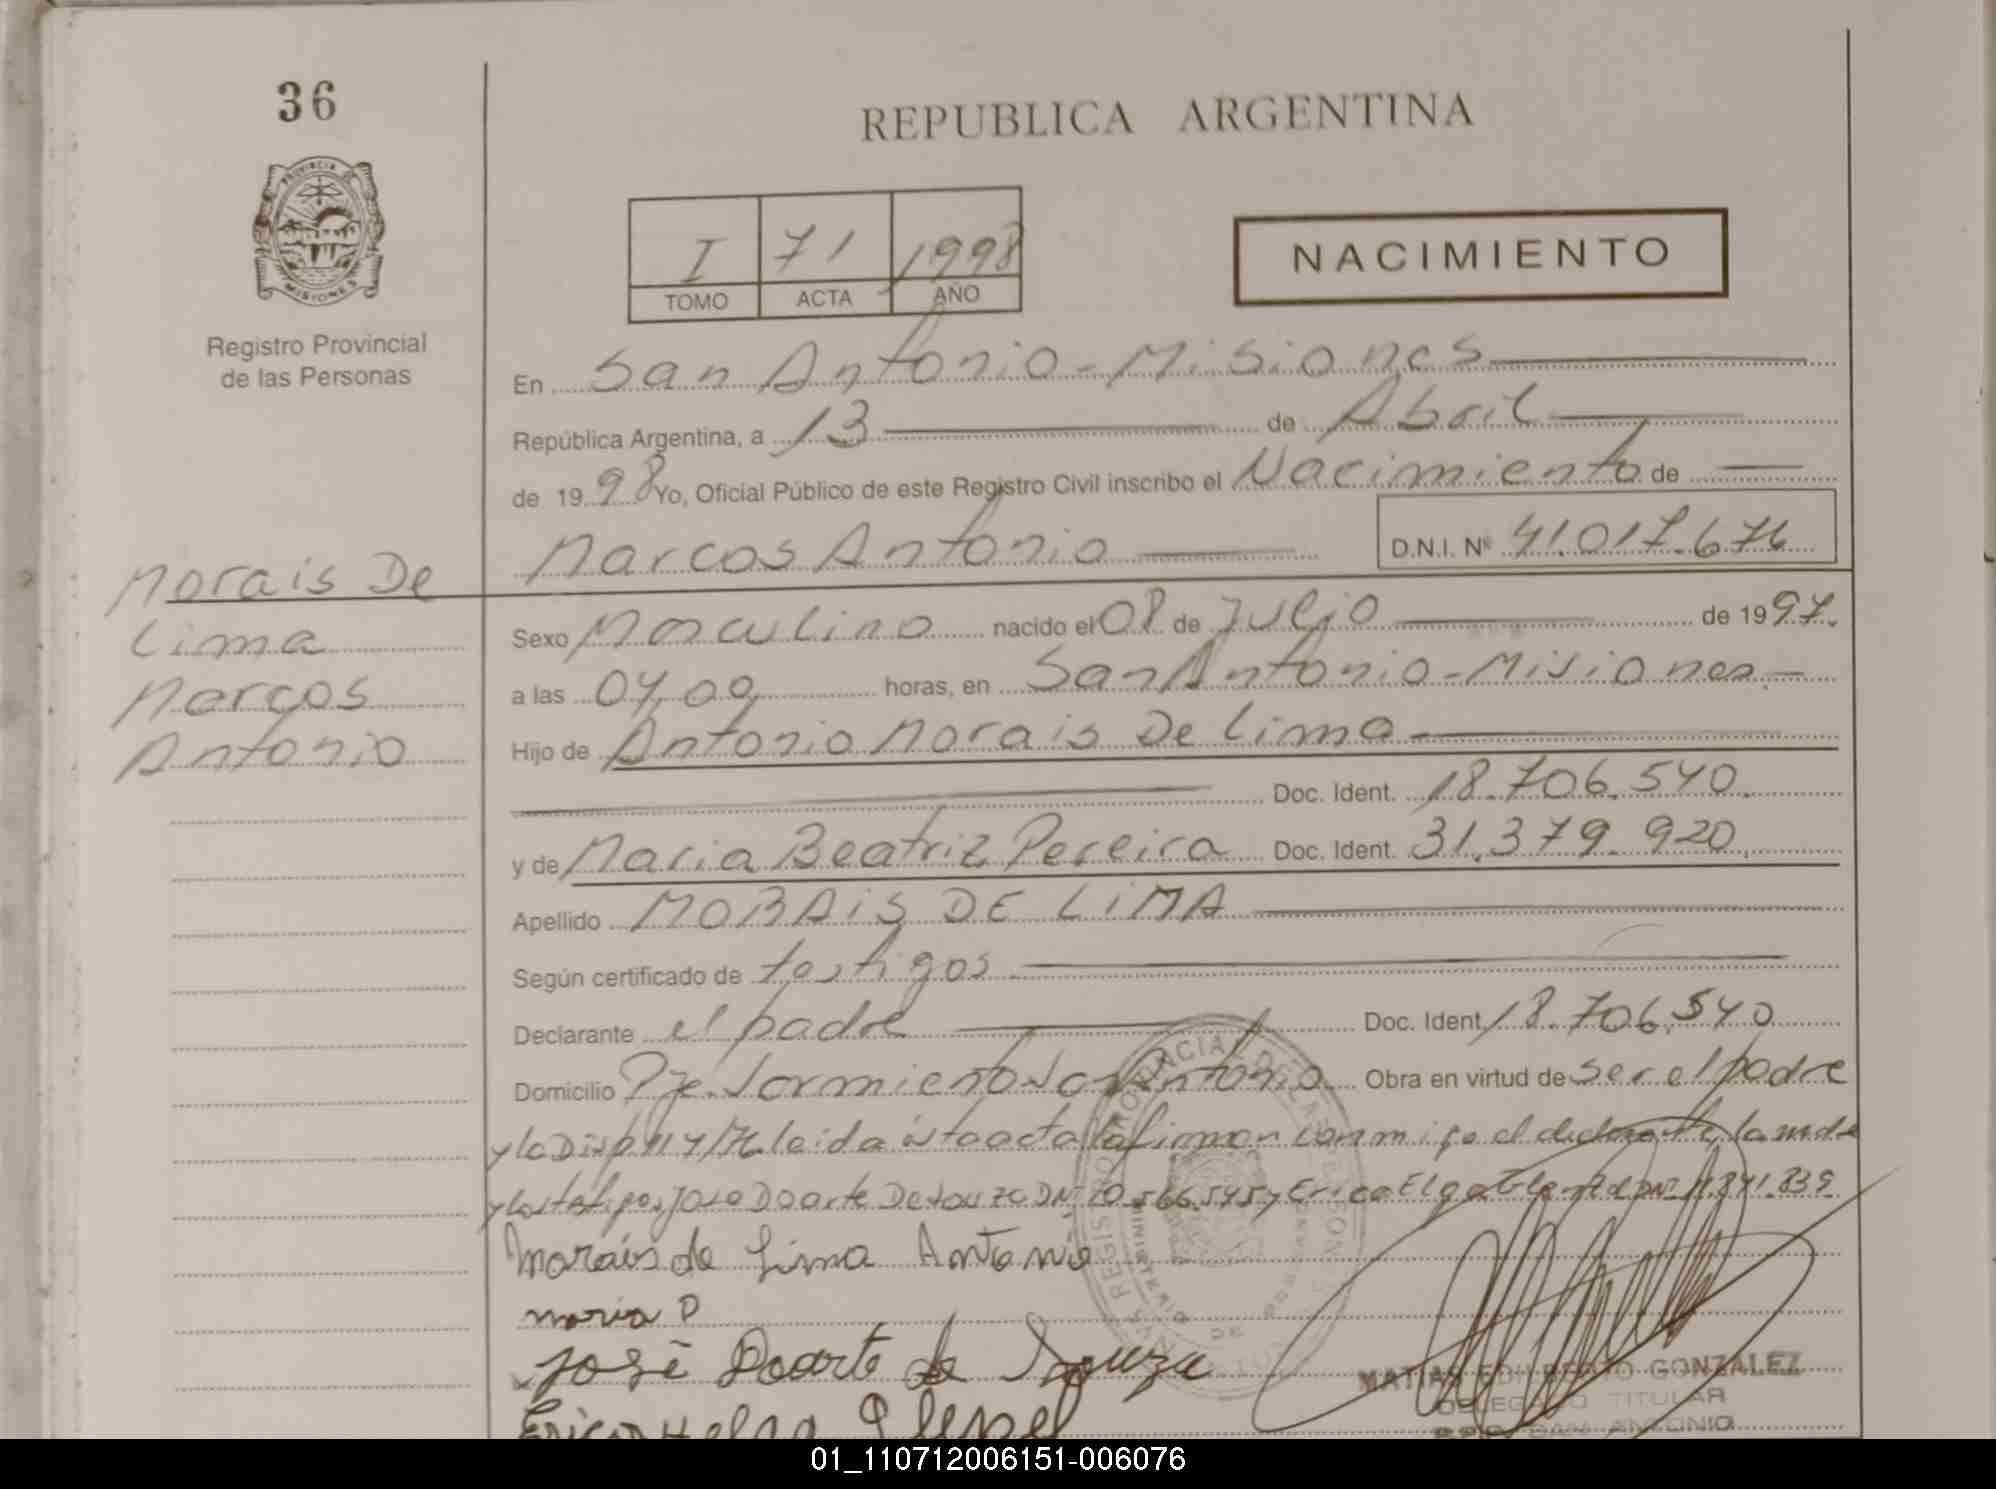 36
REPUBLICA ARGENTINA
PROVINCIA DE
MISIONES
Registro Provincial
de las Personas
I 71 1998
TOMO ACTA AÑO
NACIMIENTO
En San Antonio - Misiones
República Argentina, a 13 de Abril
de 19 98 Yo, Oficial Público de este Registro Civil inscribo el Nacimiento de
Marcos Antonio D.N.I. Nº 41.017.676
Morais De
Lima
Marcos
Antonio
Sexo Masculino nacido el 08 de Julio de 19 97.
a las 04,00 horas, en San Antonio - Misiones.-
Hijo de Antonio Morais De Lima
Doc. Ident. 18.706.540.
y de Maria Beatriz Pereira Doc. Ident. 31.379.920.
Apellido MORAIS DE LIMA
Según certificado de testigos
Declarante el padre Doc. Ident. 18.706.540
Domicilio Pje. Sarmiento San Antonio Obra en virtud de ser el padre
y la Disp leida esta acta la firman conmigo el declarante, la madre
y los testigos Jose Doarte De Souza DNI y Erica Elga DNI
Morais de Lima Antonio
maria P
José Doarte de Souza
MATIAS EDILBERTO GONZALEZ
DELEGADO TITULAR
SAN ANTONIO
01_110712006151-006076